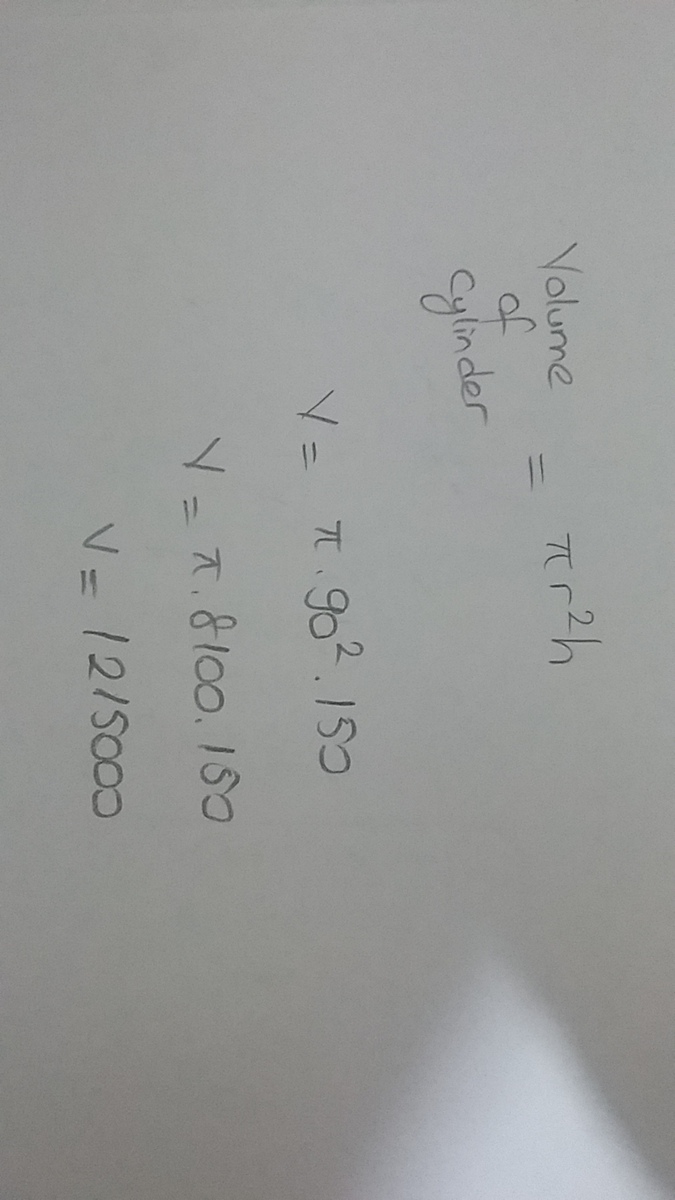 Volume of cylinder = πr²h
V = π . 90² . 150
V = π . 8100 . 150
V = 1215000